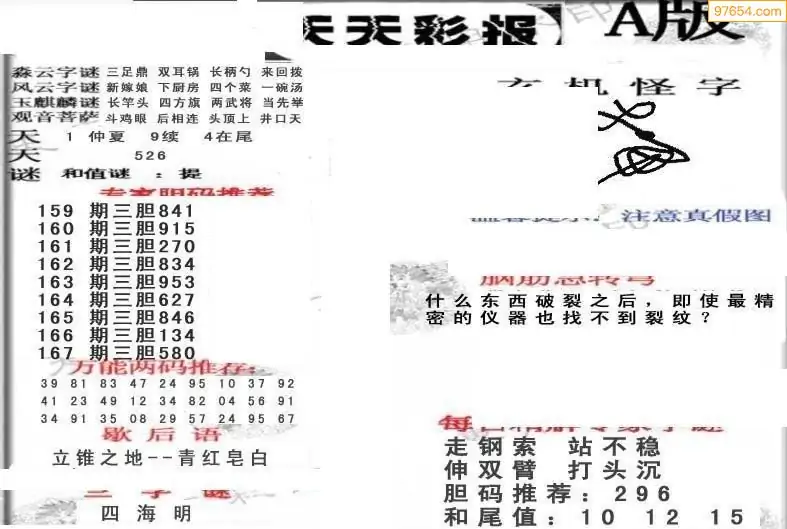 天天彩报
A版
97654.com
淼云字谜 三足鼎 双耳锅 长柄勺 来回拨
风云字谜 新嫁娘 下厨房 四个菜 一碗汤
玉麒麟谜 长竿头 四方旗 两武将 当先举
观音菩萨 斗鸡眼 后相连 头顶上 井口天
天 1 仲夏 9续 4在尾
天 526
谜 和值谜 : 提
专家胆码推荐
159 期三胆841
160 期三胆915
161 期三胆270
162 期三胆834
163 期三胆953
164 期三胆627
165 期三胆846
166 期三胆134
167 期三胆580
万能两码推荐:
39 81 83 47 24 95 10 37 92
41 23 49 12 34 82 04 56 91
34 91 35 08 29 57 24 95 67
歇后语
立锥之地--青红皂白
三字谜
四海明
玄机怪字
注意真假图
脑筋急转弯
什么东西破裂之后，即使最精
密的仪器也找不到裂纹？
走钢索 站不稳
伸双臂 打头沉
胆码推荐: 296
和尾值: 10 12 15